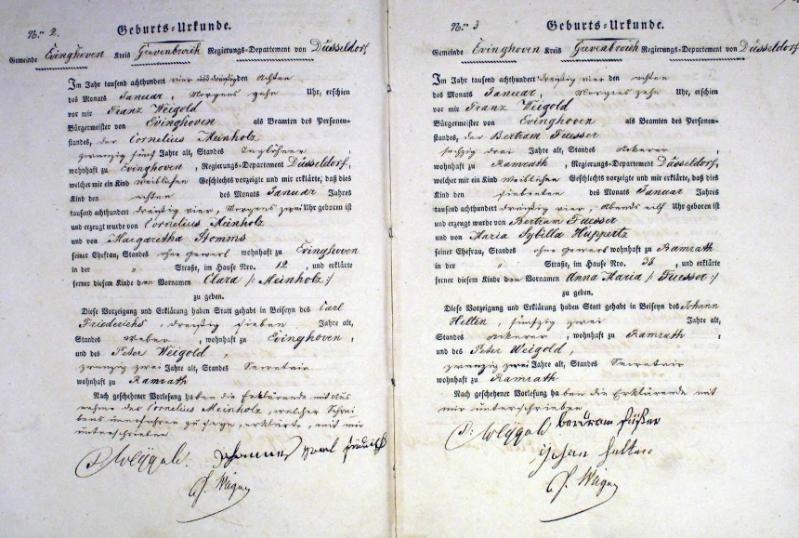 Nro. 2.
Geburts-Urkunde.
Gemeinde Evinghoven Kreis Grevenbroich Regierungs-Departement von Düsseldorf
Im Jahr tausend achthundert vier und dreißig den achten
des Monats Januar, Morgens zehn Uhr, erschien
vor mir Franz Weigold
Bürgermeister von Evinghoven als Beamten des Personen-
standes, der Cornelius Meinholz
zwanzig fünf Jahre alt, Standes Taglöhner
wohnhaft zu Evinghoven, Regierungs-Departement Düsseldorf,
welcher mir ein Kind weiblichen Geschlechts vorzeigte und mir erklärte, daß dies
Kind den achten des Monats Januar Jahres
tausend achthundert dreißig vier, Morgens zwei Uhr geboren ist
und erzeugt wurde von Cornelius Meinholz
und von Margaretha Stomms
seiner Ehefrau, Standes ohne gewerb wohnhaft zu Evinghoven
in der " Straße, im Hause Nro. 12, und erklärte
ferner diesem Kinde den Vornamen Clara /: Meinholz :/
zu geben.
Diese Vorzeigung und Erklärung haben Statt gehabt in Beiseyn des Carl
Friederichs, dreißig sieben Jahre alt,
Standes Weber, wohnhaft zu Evinghoven,
und des Peter Weigold,
zwanzig zwei Jahre alt, Standes Secretair
wohnhaft zu Ramrath
Nach geschehener Vorlesung haben die Erklärende mit Aus
nahme des Cornelius Meinholz, welcher Schrei
bens unerfahren zu seyn, erklärte, mit mir
unterschrieben
P. Weygold.
Nro. 3
Geburts-Urkunde.
Gemeinde Evinghoven Kreis Grevenbroich Regierungs-Departement von Düsseldorf
Im Jahr tausend achthundert dreißig vier den achten
des Monats Januar, Morgens zehn Uhr, erschien
vor mir Franz Weigold
Bürgermeister von Evinghoven als Beamten des Personen-
standes, der Bertram Fuesser
sechzig drei Jahre alt, Standes Ackerer
wohnhaft zu Ramrath, Regierungs-Departement Düsseldorf,
welcher mir ein Kind weiblichen Geschlechts vorzeigte und mir erklärte, daß dies
Kind den siebenten des Monats Januar Jahres
tausend achthundert dreißig vier, Abends eilf Uhr geboren ist
und erzeugt wurde von Bertram Fuesser
und von Maria Sybilla Huppertz
seiner Ehefrau, Standes ohne gewerb wohnhaft zu Ramrath
in der " Straße, im Hause Nro. 38, und erklärte
ferner diesem Kinde den Vornamen Anna Maria /: Fuesser :/
zu geben.
Diese Vorzeigung und Erklärung haben Statt gehabt in Beiseyn des Johann
Helten, fünfzig zwei Jahre alt,
Standes Ackerer, wohnhaft zu Ramrath,
und des Peter Weigold,
zwanzig zwei Jahre alt, Standes Secretair
wohnhaft zu Ramrath
Nach geschehener Vorlesung haben die Erklärende mit
mir unterschrieben
P. Weygold. bertram füßer
johan helten